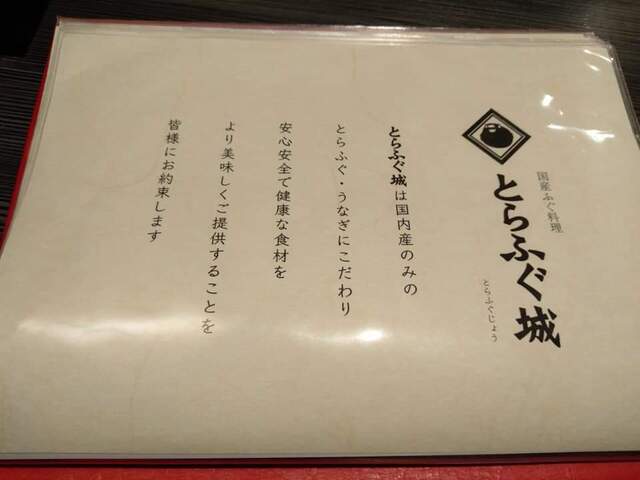 国産ふぐ料理
とらふぐ城
とらふぐじょう
とらふぐ城は国内産のみの
とらふぐ・うなぎにこだわり
安心安全で健康な食材を
より美味しくご提供することを
皆様にお約束します